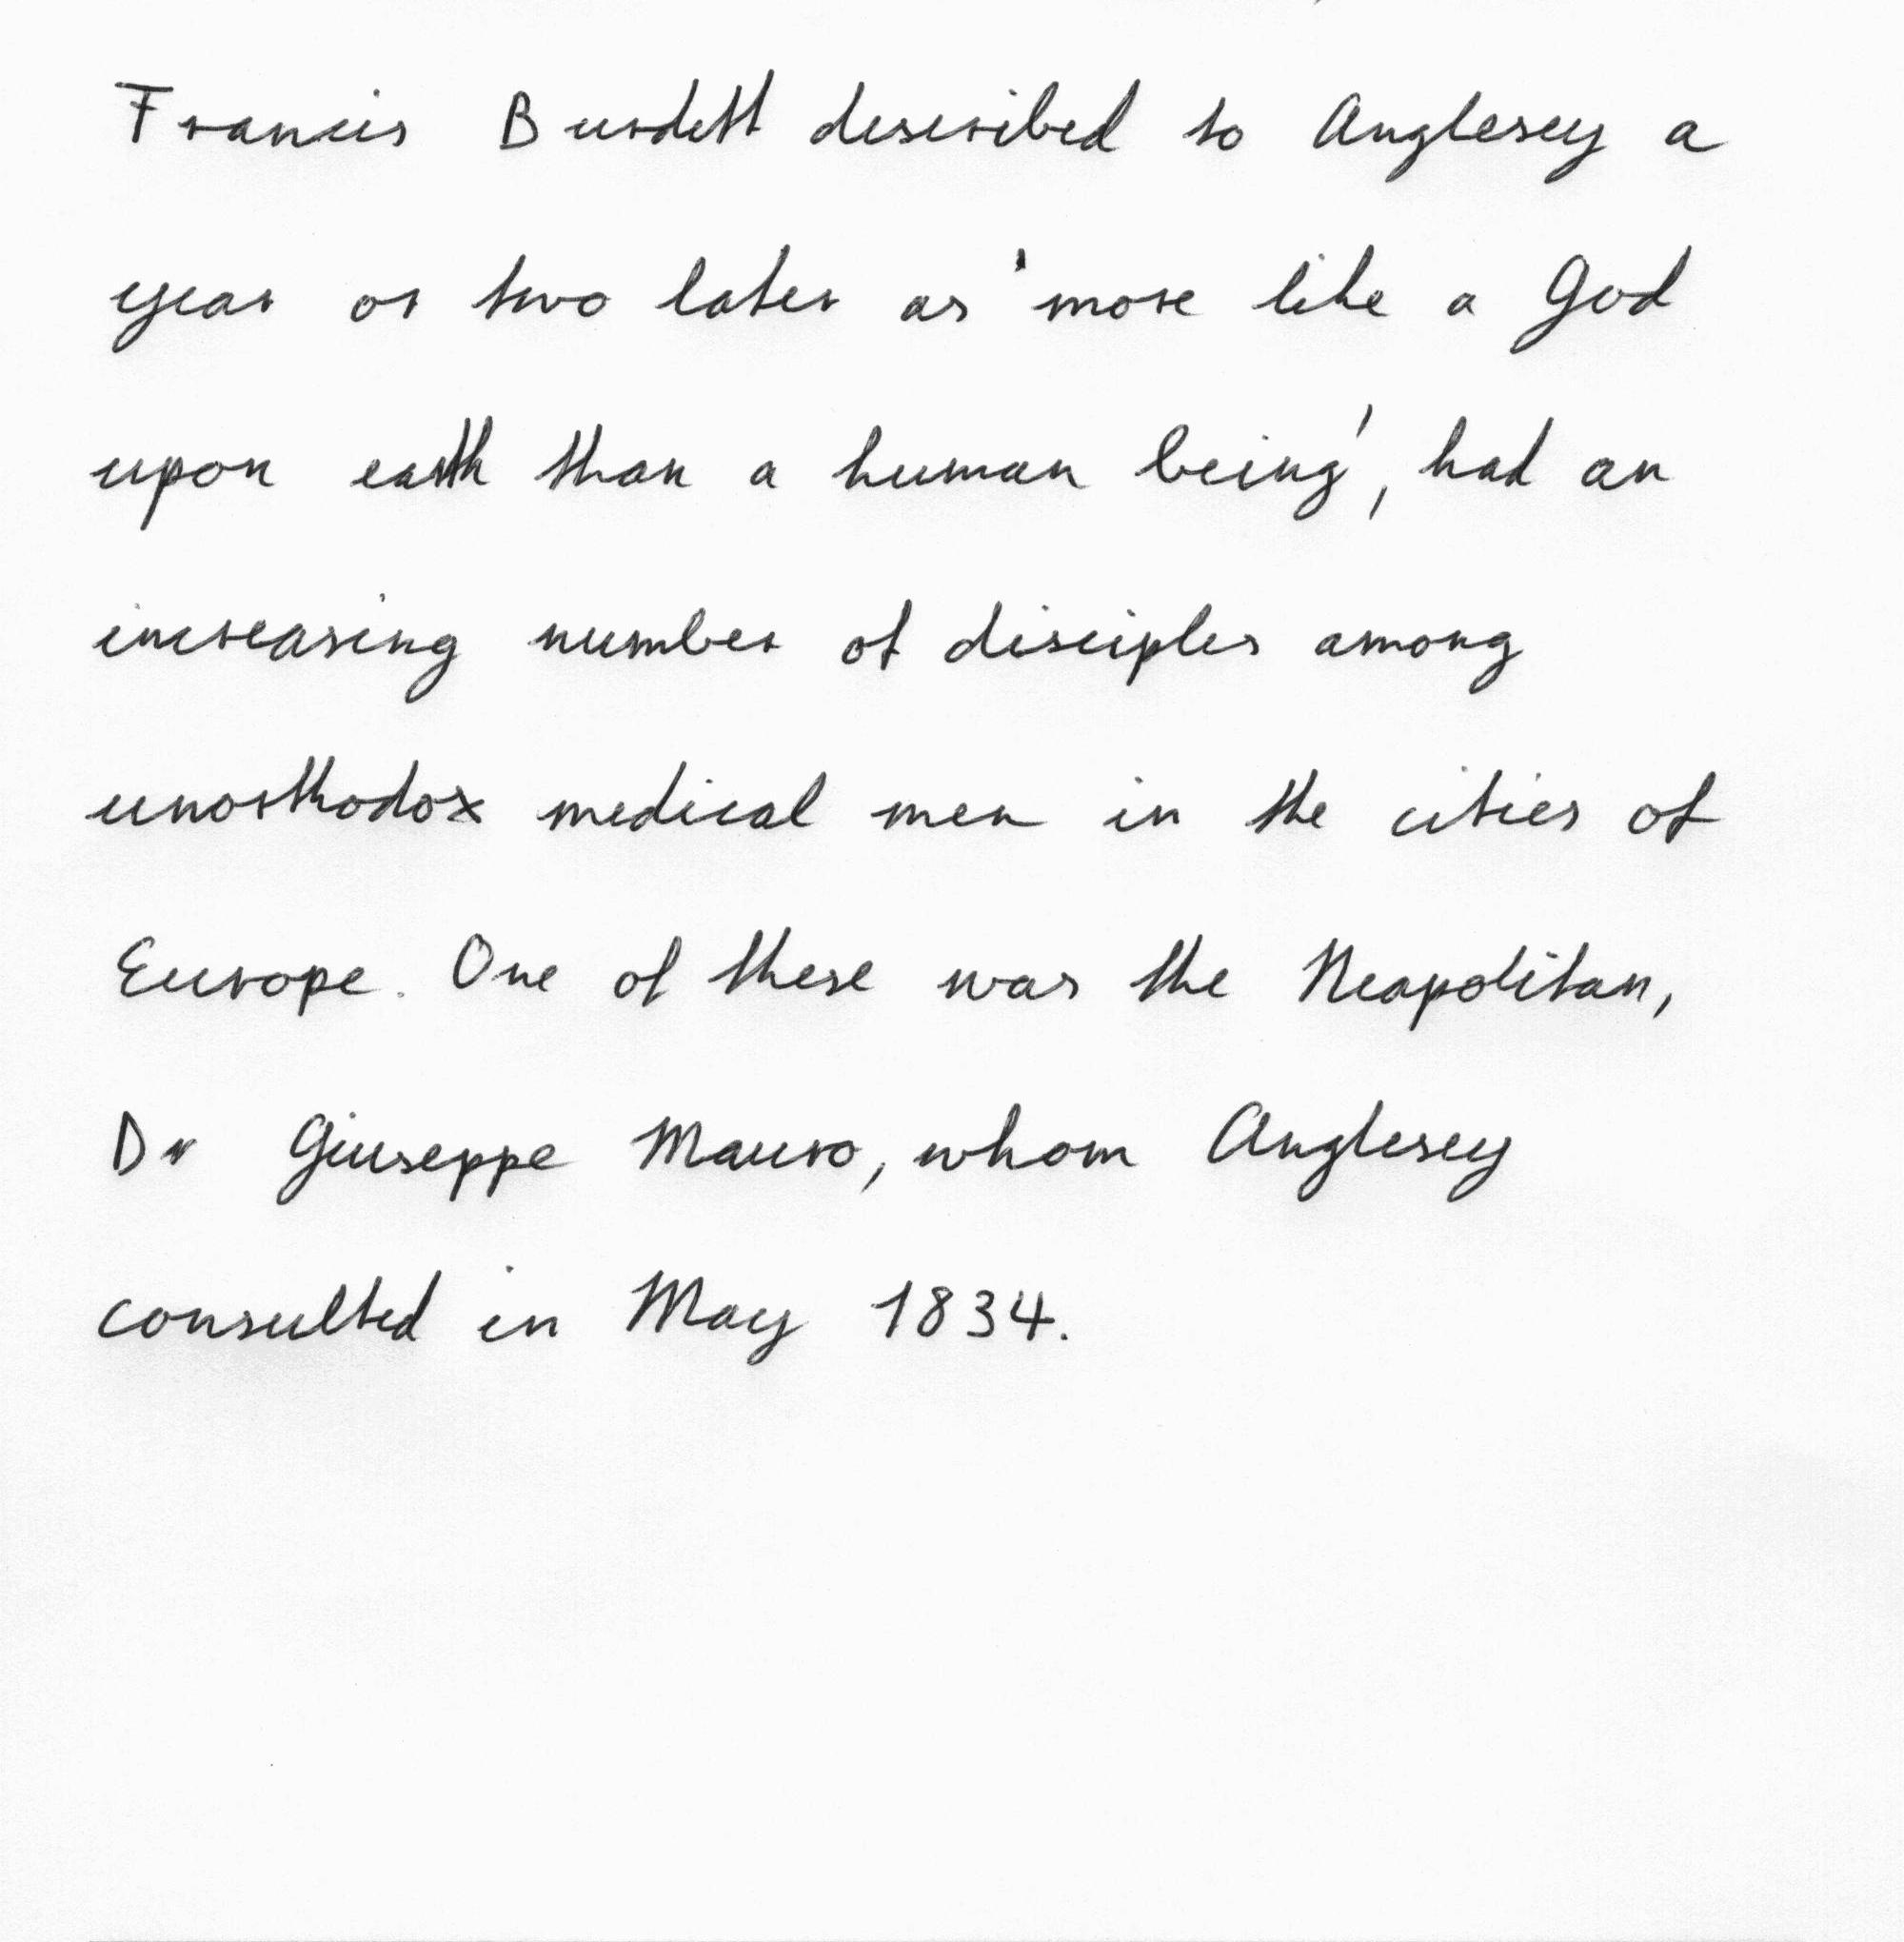 Francis Burdett described to Anglesey a
year or two later as 'more like a God
upon earth than a human being', had an
increasing number of disciples among
unorthodox medical men in the cities of
Europe. One of these was the Neapolitan,
Dr Giuseppe Mauro, whom Anglesey
consulted in May 1834.